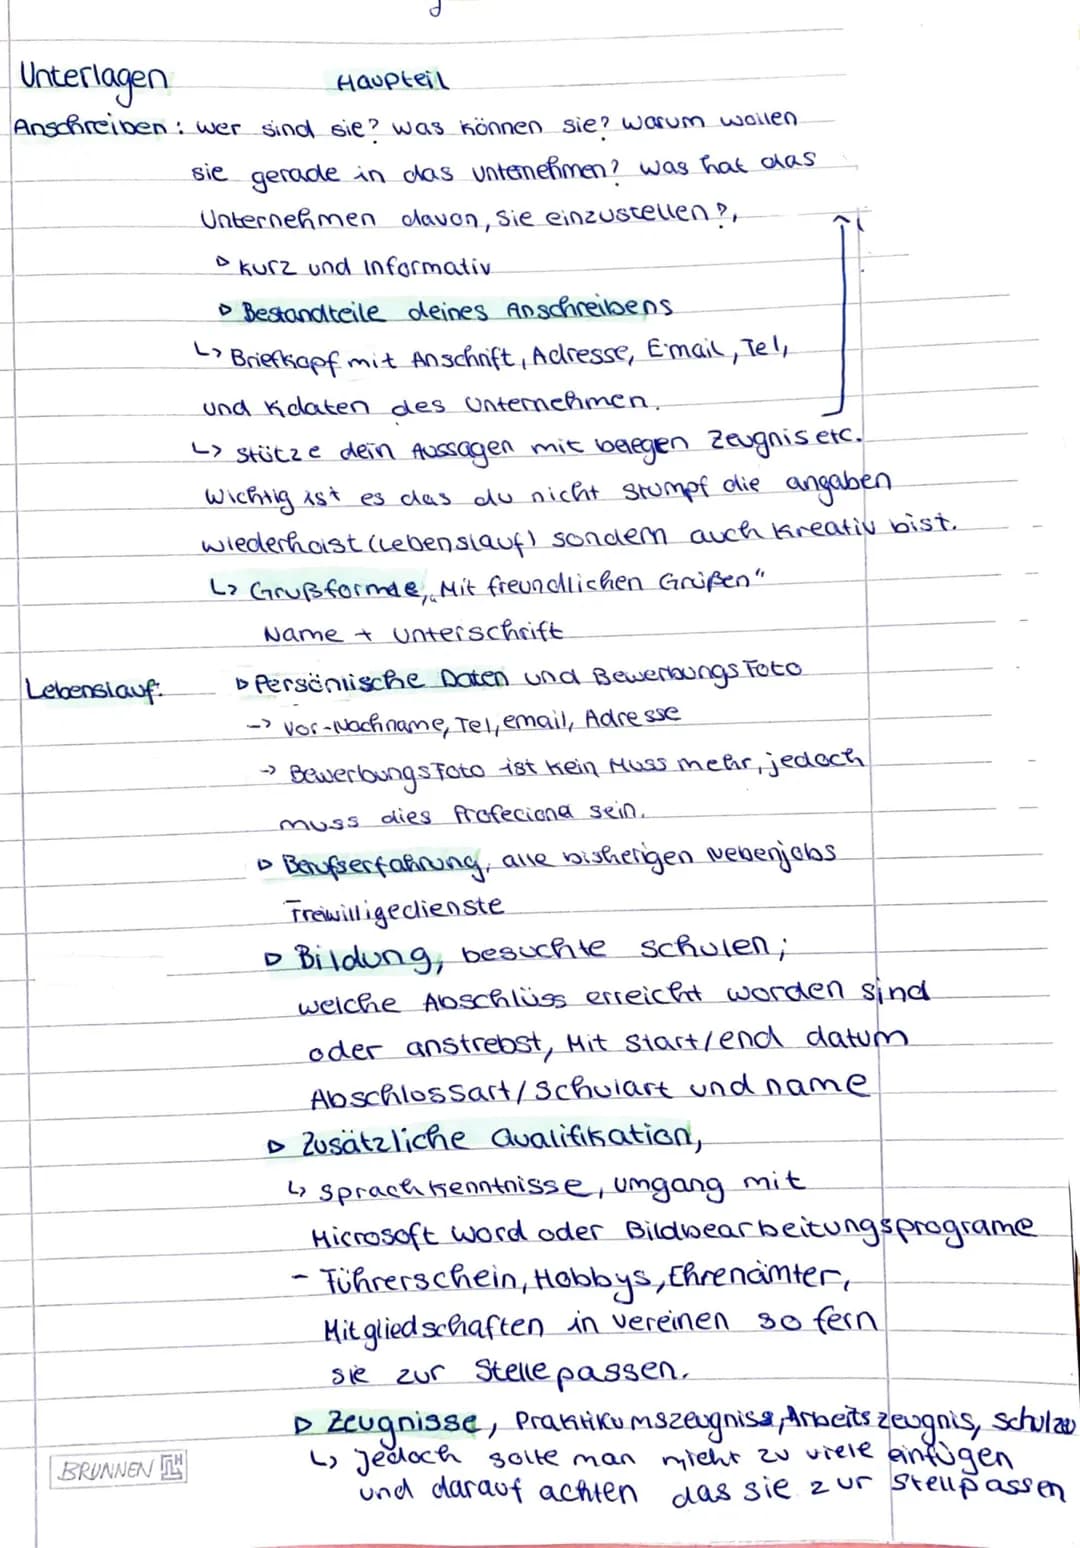 Unterlagen Haupteil
Anschreiben: wer sind sie? was können sie? warum wollen
sie gerade in das unternehmen? was hat das
Unternehmen davon, Sie einzustellen?,
▷ kurz und Informativ
▷ Bestandteile deines Anschreibens
↳ Briefkopf mit Anschrift, Adresse, E-mail, Tel,
und Kdaten des Unternehmen.
↳ stütze dein Aussagen mit belegen Zeugnis etc.
Wichtig ist es das du nicht stumpf die angaben
wiederholst (Lebenslauf) sondern auch kreativ bist.
↳ Grußformel, „Mit freundlichen Grüßen"
Name + Unterschrift
Lebenslauf: ▷ Persönlische Daten und Bewerbungsfoto
-> Vor-Nachname, Tel, email, Adresse
-> Bewerbungsfoto ist kein Muss mehr, jedoch
muss dies Profeciona sein.
▷ Berufserfahrung, alle bisherigen nebenjobs
Freiwilligedienste
▷ Bildung, besuchte schulen;
welche Abschlüss erreicht worden sind
oder anstrebst, Mit Start/end datum
Abschlossart/Schulart und name
▷ Zusätzliche Qualifikation,
↳ sprachkenntnisse, umgang mit
Microsoft word oder Bildbearbeitungsprograme
- Führerschein, Hobbys, Ehrenämter,
Mitgliedschaften in vereinen so fern
sie zur Stelle passen.
▷ Zeugnisse, Praktikumszeugniss, Arbeitszeugnis, schulze
↳ jedoch solte man nicht zu viele einfügen
und darauf achten das sie zur Stellpassen
BRUNNEN